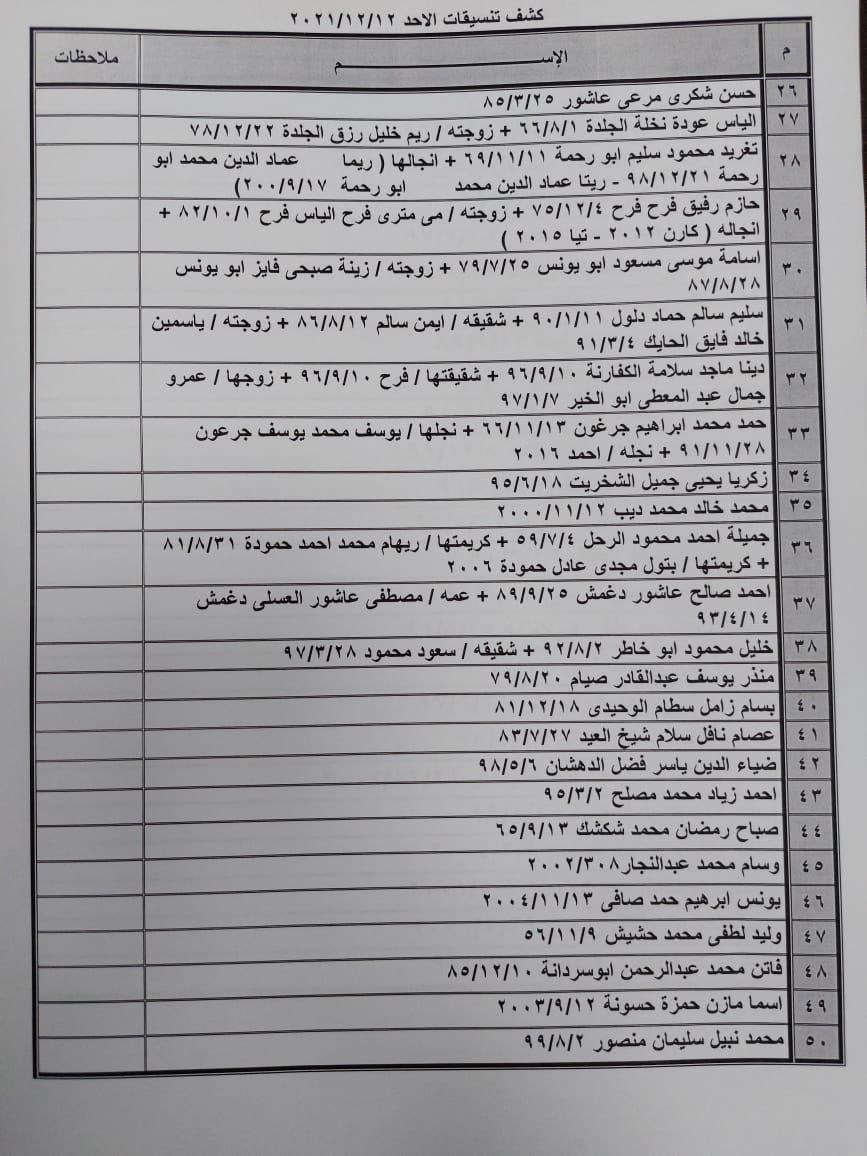 كشف تنسيقات الاحد ٢٠٢١/١٢/١٢
م الإســـــم ملاحظات
٢٦ حسن شكرى مرعى عاشور ٨٥/٣/٢٥
٢٧ الياس عودة نخلة الجلدة ٦٦/٨/١ + زوجته / ريم خليل رزق الجلدة ٧٨/١٢/٢٢
٢٨ تغريد محمود سليم ابو رحمة ٦٩/١١/١١ + انجالها ( ريما عماد الدين محمد ابو
رحمة ٩٨/١٢/٢١ - ريتا عماد الدين محمد ابو رحمة ٢٠٠/٩/١٧)
٢٩ حازم رفيق فرح فرح ٧٥/١٢/٤ + زوجته / مى مترى فرح الياس فرح ٨٢/١٠/١ +
انجاله ( كارن ٢٠١٢ - تيا ٢٠١٥ )
٣٠ اسامة موسى مسعود ابو يونس ٧٩/٧/٢٥ + زوجته / زينة صبحى فايز ابو يونس
٨٧/٨/٢٨
٣١ سليم سالم حماد دلول ٩٠/١/١١ + شقيقه / ايمن سالم ٨٦/٨/١٢ + زوجته / ياسمين
خالد فايق الحايك ٩١/٣/٤
٣٢ دينا ماجد سلامة الكفارنة ٩٦/٩/١٠ + شقيقتها / فرح ٩٦/٩/١٠ + زوجها / عمرو
جمال عبد المعطى ابو الخير ٩٧/١/٧
٣٣ حمد محمد ابراهيم جرغون ٦٦/١١/١٣ + نجلها / يوسف محمد يوسف جرعون
٩١/١١/٢٨ + نجله / احمد ٢٠١٦
٣٤ زكريا يحيى جميل الشخريت ٩٥/٦/١٨
٣٥ محمد خالد محمد ديب ٢٠٠٠/١١/١٢
٣٦ جميلة احمد محمود الرحل ٥٩/٧/٤ + كريمتها / ريهام محمد احمد حمودة ٨١/٨/٣١
+ كريمتها / بتول مجدى عادل حمودة ٢٠٠٦
٣٧ احمد صالح عاشور دغمش ٨٩/٩/٢٥ + عمه / مصطفى عاشور العسلى دغمش
٩٣/٤/١٤
٣٨ خليل محمود ابو خاطر ٩٢/٨/٢ + شقيقه / سعود محمود ٩٧/٣/٢٨
٣٩ منذر يوسف عبدالقادر صيام ٧٩/٨/٢٠
٤٠ بسام زامل سطام الوحيدى ٨١/١٢/١٨
٤١ عصام نافل سلام شيخ العيد ٨٣/٧/٢٧
٤٢ ضياء الدين ياسر فضل الدهشان ٩٨/٥/٦
٤٣ احمد زياد محمد مصلح ٩٥/٣/٢
٤٤ صباح رمضان محمد شكشك ٦٥/٩/١٣
٤٥ وسام محمد عبدالنجار٢٠٠٢/٣٠٨
٤٦ يونس ابرهيم حمد صافى ٢٠٠٤/١١/١٣
٤٧ وليد لطفى محمد حشيش ٥٦/١١/٩
٤٨ فاتن محمد عبدالرحمن ابوسردانة ٨٥/١٢/١٠
٤٩ اسما مازن حمزة حسونة ٢٠٠٣/٩/١٢
٥٠ محمد نبيل سليمان منصور ٩٩/٨/٢